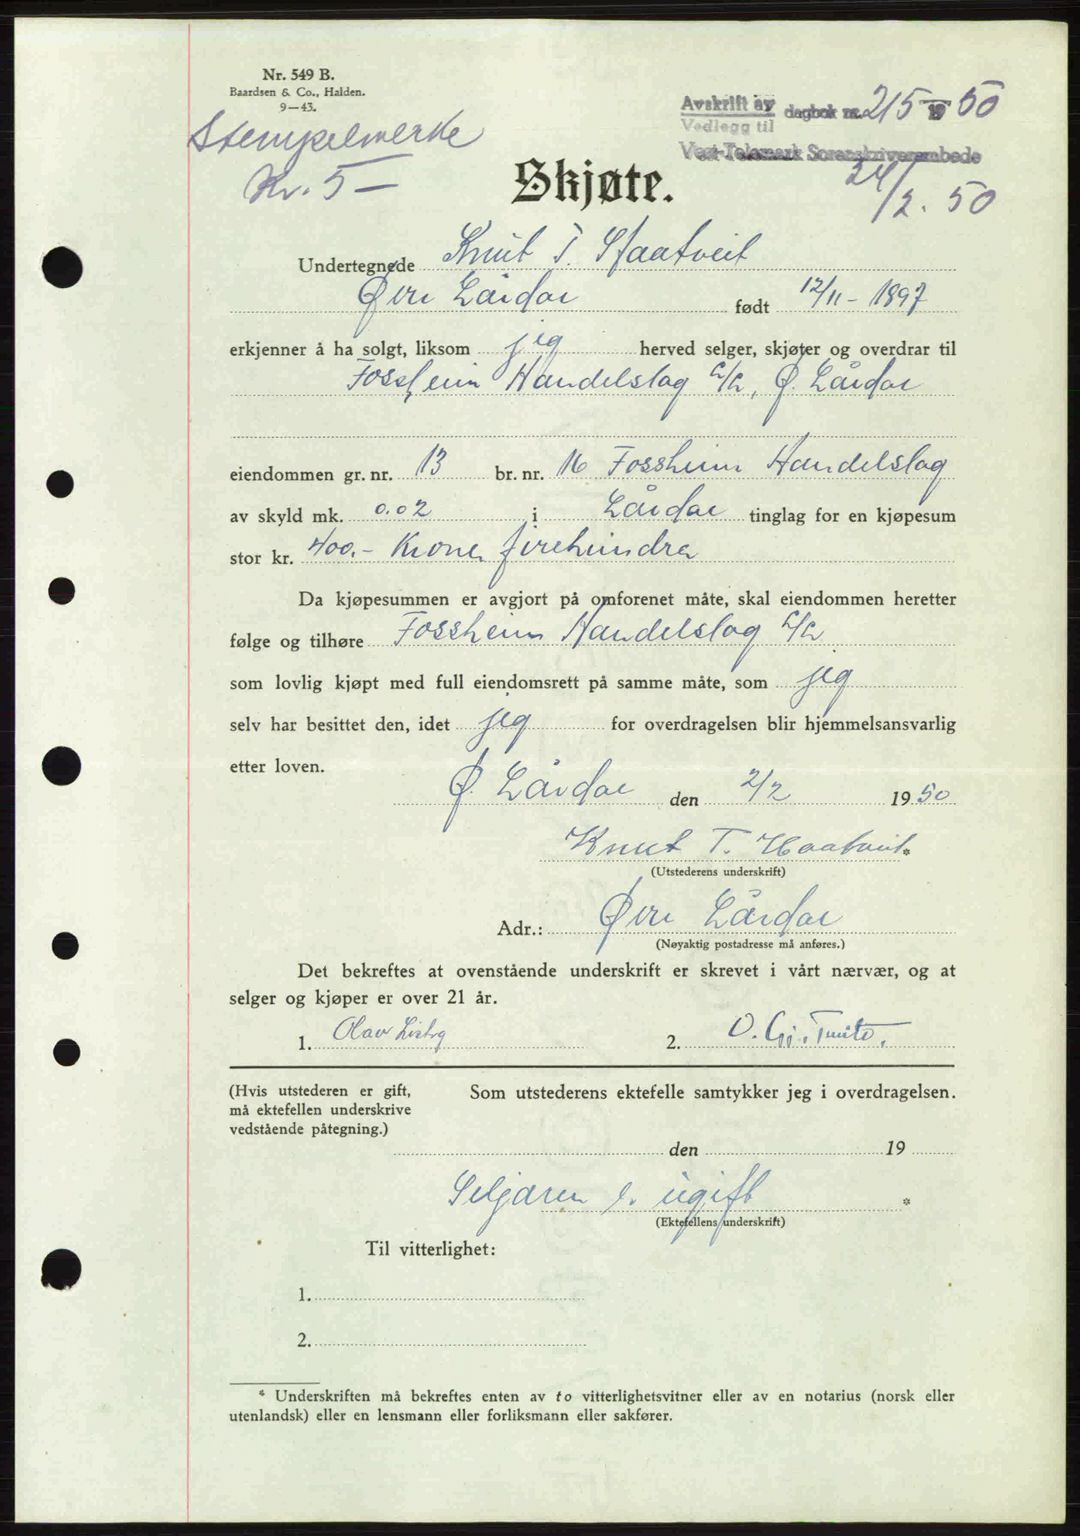 Nr. 549 B.
Baardsen & Co., Halden.
9—43.
Stempelmerke
Kr. 5 —
Avskrift av
Vedlegg til
dagbok nr. 215 - 19 50
Vest-Telemark Sorenskriverembede
24/2. 50
Skjøte.
Undertegnede Knut T. Haatveit
Øvre Lårdal født 12/11 - 1897
erkjenner å ha solgt, liksom jeg herved selger, skjøter og overdrar til
Fossheim Handelslag L/L, Ø. Lårdal
eiendommen gr. nr. 13 br. nr. 16 Fossheim Handelslag
av skyld mk. 0.02 i Lårdal tinglag for en kjøpesum
stor kr. 400.- Kroner firehundre
Da kjøpesummen er avgjort på omforenet måte, skal eiendommen heretter
følge og tilhøre Fossheim Handelslag L/L
som lovlig kjøpt med full eiendomsrett på samme måte, som jeg
selv har besittet den, idet jeg for overdragelsen blir hjemmelsansvarlig
etter loven.
Ø. Lårdal den 2/2 1950
Knut T. Haatveit *
(Utstederens underskrift)
Adr.: Øvre Lårdal
(Nøyaktig postadresse må anføres.)
Det bekreftes at ovenstående underskrift er skrevet i vårt nærvær, og at
selger og kjøper er over 21 år.
1. Olav 2. O. Gj. Tveito.
(Hvis utstederen er gift,
må ektefellen underskrive
vedstående påtegning.)
Som utstederens ektefelle samtykker jeg i overdragelsen.
den 19
Seljaren e. ugift *
(Ektefellens underskrift)
Til vitterlighet:
1.
2.
* Underskriften må bekreftes enten av to vitterlighetsvitner eller av en notarius (norsk eller
utenlandsk) eller en lensmann eller forliksmann eller sakfører.